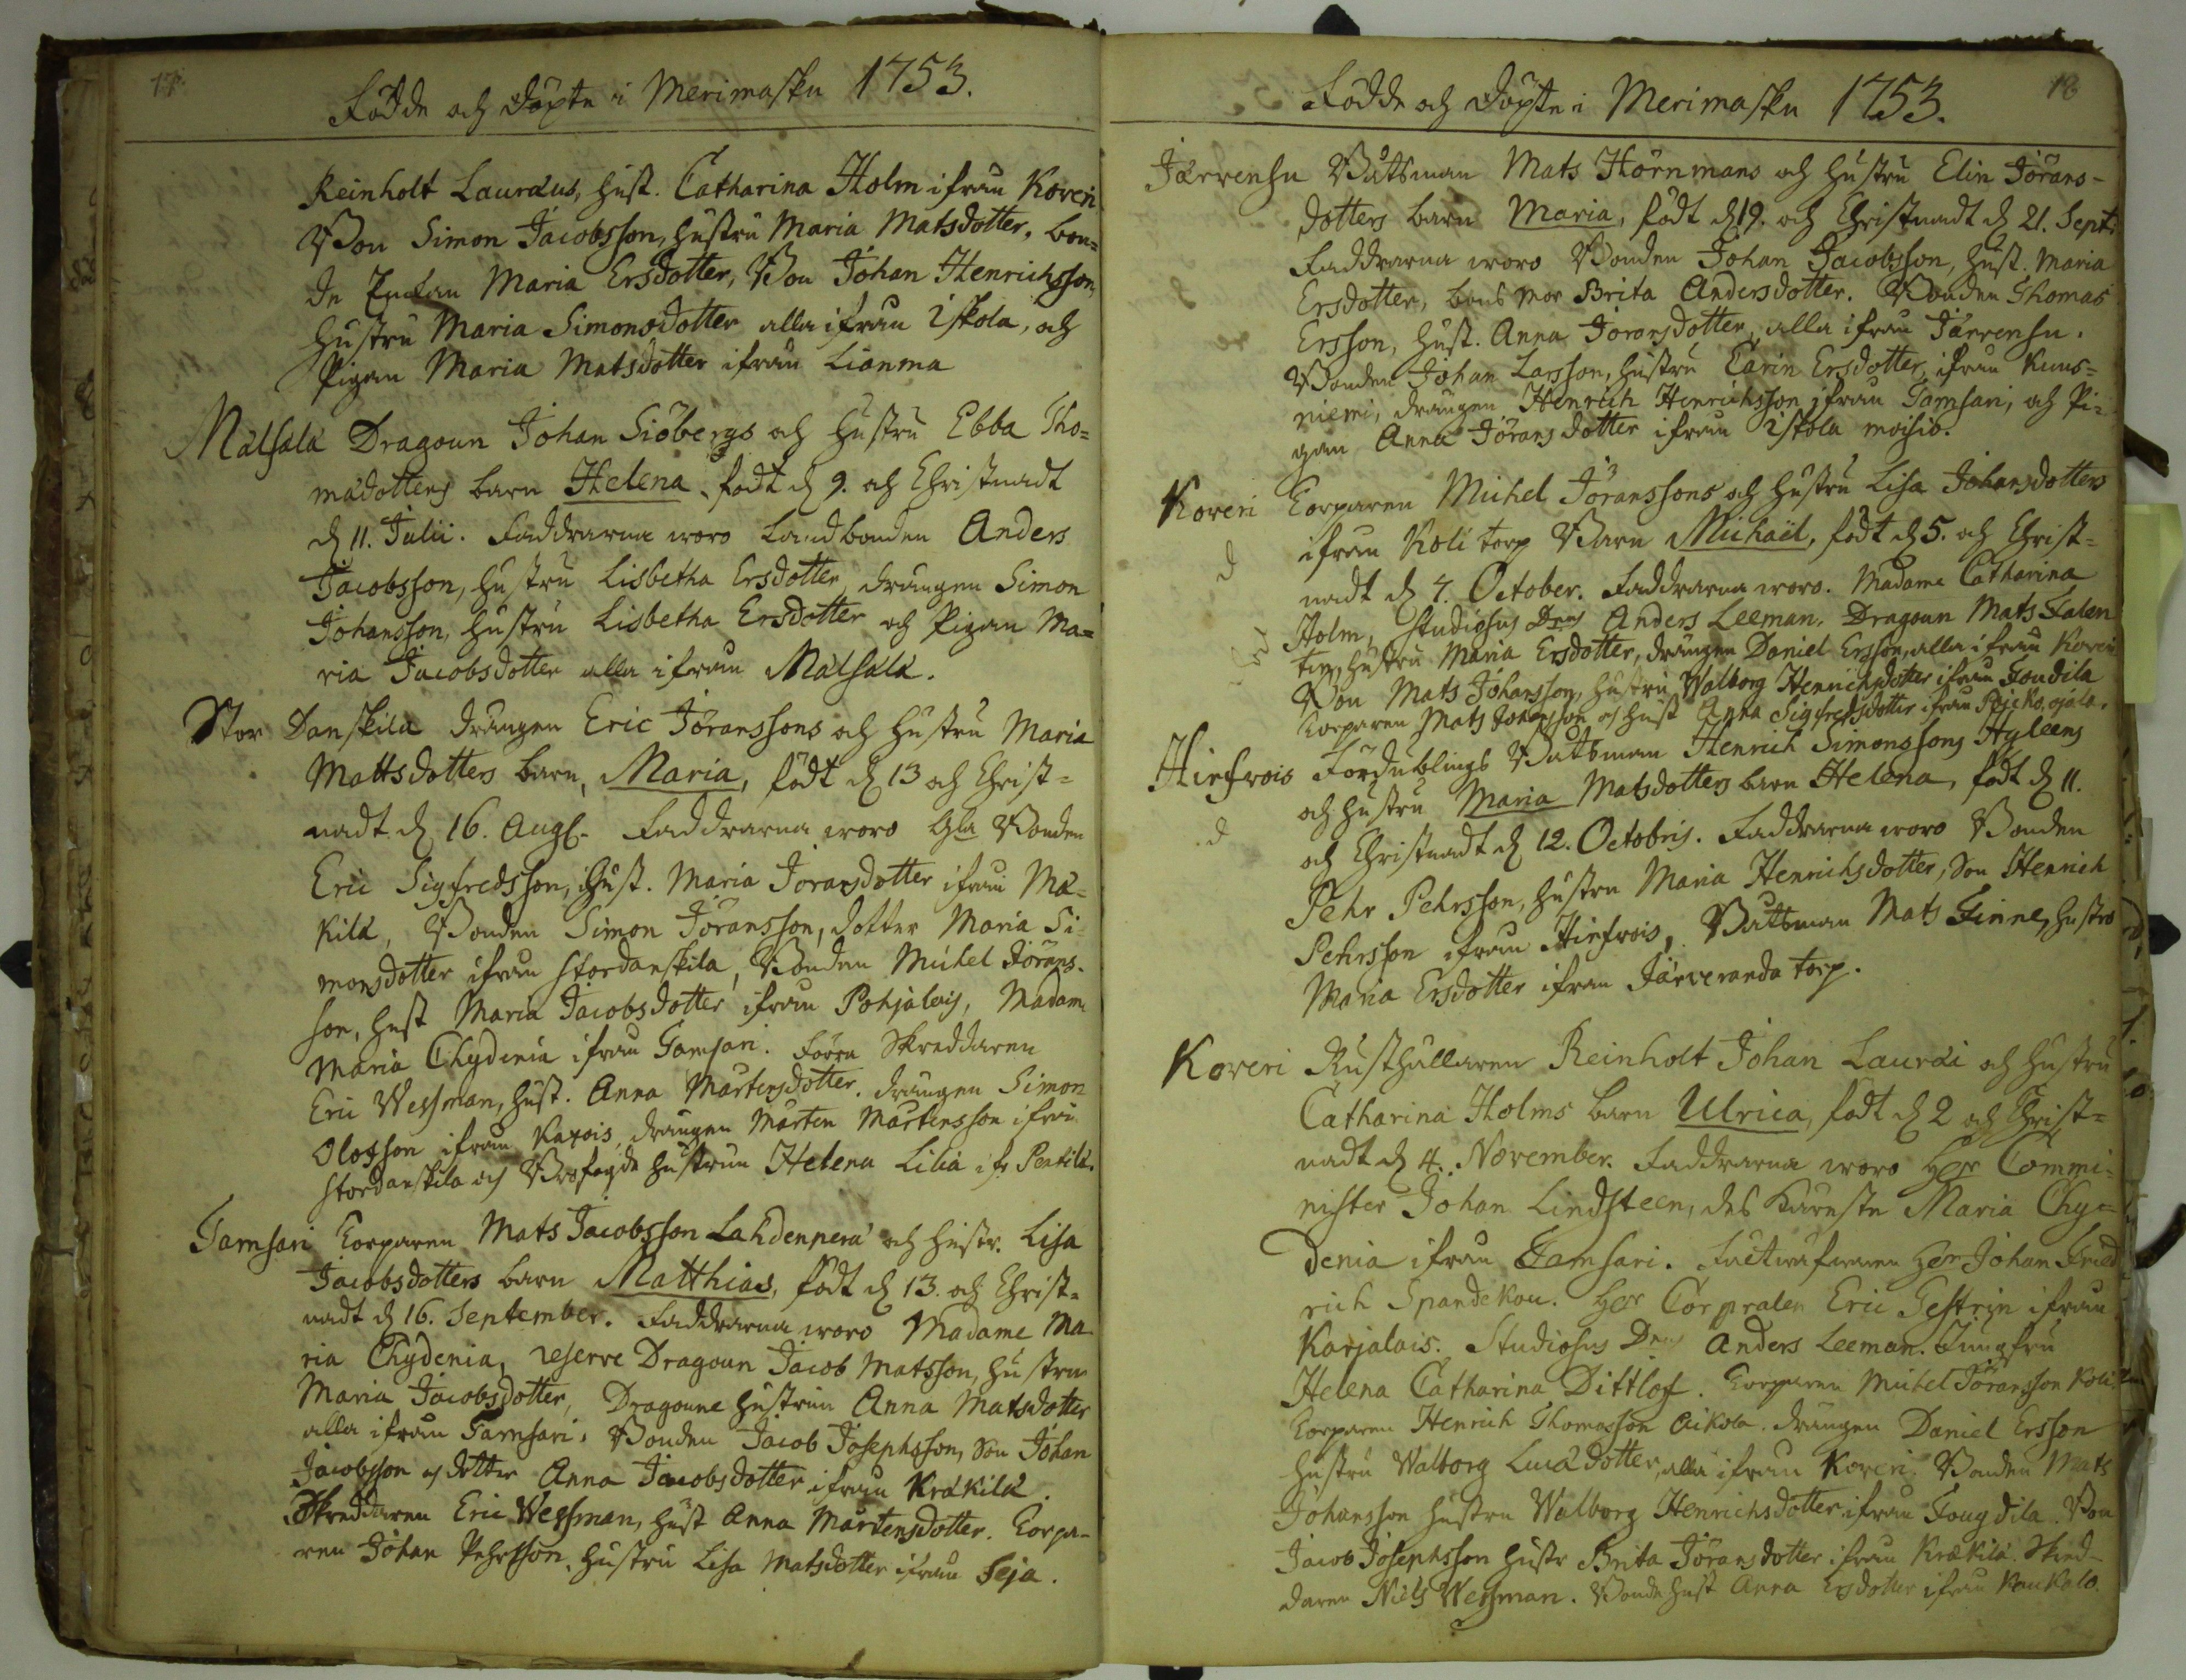 17.
Födde och Döpte i Merimasku 1753.
Reinholt Lauræus, hust. Catharina Holm ifrån Koveri
Bon Simon Jacobsson, hustru Maria Matsdotter, bon=
de Enkan Maria Ersdotter, Bon Johan Henrichsson,
hustru Maria Simonsdotter alla ifrån Iskola, och
Pigan Maria Matsdotter ifrån Lianma
Mälsälä Dragoun Johan Siöbergs och hustru Ebba Tho=
mædotters barn Helena, födt d. 9. och Christnadt
d. 11. Julii. Faddrarna woro Landbonden Anders
Jacobsson, hustru Lisbetha Ersdotter, drängen Simon
Johansson, hustru Lisbetha Ersdotter och Pigan Ma=
ria Jacobsdotter alla ifrån Mälsälä.
Stor Danskila drängen Eric Jöranssons och hustru Maria
Mattsdotters barn, Maria, födt d. 13 och Christ=
nadt d. 16. Aug. Faddrarna woro Gla Bonden
Eric Sigfredsson, hust. Maria Joransdotter ifrån Mä=
kilä, Bonden Simon Joransson, dotter Maria Si=
monsdotter ifrån Stordanskila, Bonden Michel Jörans-
son, hust Maria Jacobsdotter ifrån Pohjalais, Madam
Maria Chydenia ifrån Tamsari. Förra Skreddaren
Eric Wessman, hust. Anna Martensdotter. drängen Simon
Olofsson ifrån Kaxois, drängen Mårten Mårtensson ifrån
Stordanskila och hustrun Helena Lilia ifr Pentilä.
Tamsari Torparen Mats Jacobsson Lahdenperä och hustr. Lisa
Jacobsdotters barn Matthias, födt d. 13. och Christ=
nadt d. 16. September. Faddrarna woro Madame Ma
ria Chydenia, reserve Dragoun Jacob Matsson, hustru
Maria Jacobsdotter, Dragoune hustrun Anna Matsdotter
alla ifrån Tamsari. Bonden Jacob Josephsson, son Johan
Jacobsson och dotter Anna Jacobsdotter ifrån Kräkilä.
Skreddaren Eric Wessman, hust Anna Mårtensdotter. Torpa-
ren Johan Pehrsson, hustru Lisa Matsdotter ifrån Seja.
18
Födde och Döpte i Merimasku 1753.
Järvensu Båtsman Mats Hörnmans och hustru Elin Jörans-
dotters barn Maria, födt d. 19. och Christnadt d. 21. Sept.
Faddrarna woro Bonden Johan Jacobsson, hust. Maria
Ersdotter, bons mor Brita Andersdotter. Bonden Thomas
Ersson, hust. Anna Joransdotter, alla ifrån Järvensu.
Bonden Johan Larsson, hustru Carin Ersdotter, ifrån Kuus=
niemi, drängen Henrich Henrichsson ifrån Tamsari, och Pi=
gan Anna Jöransdotter ifrån Iskola moisio.
Koveri Torparen Michel Joranssons och hustru Lisa Johansdotters
ifrån Koli torp Barn Michaël, födt d. 5. och Christ=
nadt d. 7. October. Faddrarna woro. Madame Catharina
Holm, Studiosus Dns Anders Leeman. Dragoun Mats Falen
hustru Maria Ersdotter, drängen Daniel Ersson, alla ifrån Koveri
Bon Mats Johansson, hustru Walborg Henrichsdotter ifrån Foudila
Torparen Mats Johansson och hust Anna Sigfredsdotter ifrån
Hirfvois Fördublings Båtsman Henrich Simonssons Hyleens
och hustru Maria Matsdotters barn Helena, födt d. 11.
och Christnadt d. 12. Octobris. Faddrarna woro Bonden
Pehr Pehrsson, hustru Maria Henrichsdotter, son Henrich
Pehrsson ifrån Hirfvois, Båtsman Mats Finne, hustru
Maria Ersdotter ifrån Järveranda torp.
Koveri Rusthållaren Reinholt Johan Lauræi och hustru
Catharina Holms barn Ulrica, födt d. 2 och Christ=
nadt d. 4. November. Faddrarna woro Herr Commi=
nister Johan Lindsteen, des Käreste Maria Chy=
denia ifrån Tamsari. Herr Johan Fried
rich Spandekou. Herr Corpralen Eric Gestrin ifrån
Karjalais. Studiosus Dns Anders Leeman. Jungfru
Helena Catharina Dittlof. Torparen Michel Jöransson Koli.
Torparen Henrich Thomasson Aikola. drängen Daniel Ersson
hustru Walborg Lucædotter, alla ifrån Koveri. Bonden Mats
Johansson hustru Walborg Henrichsdotter ifrån Fougdila. Bon
Jacob Josephsson hustr Brita Jöransdotter ifrån Kräkilä. Skred-
daren Nils Wessman. Bonde hust Anna Ersdotter ifrån Kaukolo.